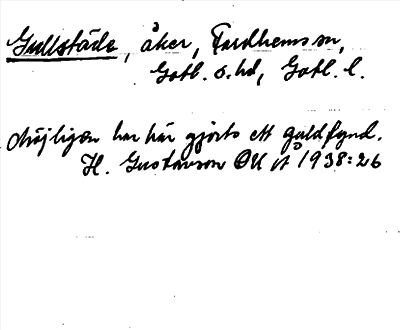 Gullstäde, åker, Fardhems sn,
Gotl. s. hd, Gotl. l.
Möjligen har här gjorts ett guldfynd.
H. Gustavson OUÅ 1938:26